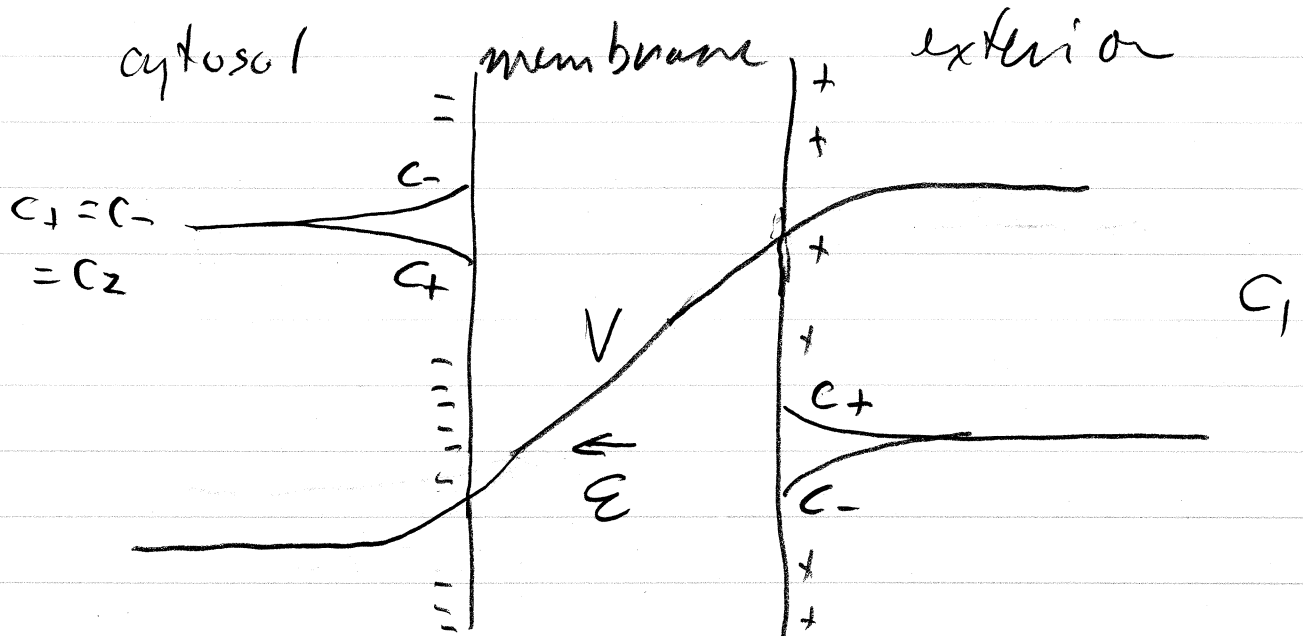 cytosol membrane exterior
C-
C+ = C-
= C2
C+
C1
V
C+
ε
C-